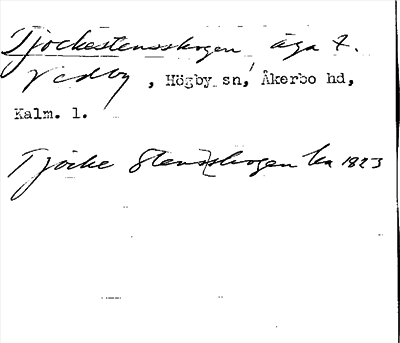 Tjockestensskogen äga t.
Vedby, Högby sn, Åkerbo hd,
Kalm. l.
Tjöcke Stensskogen ka 1823